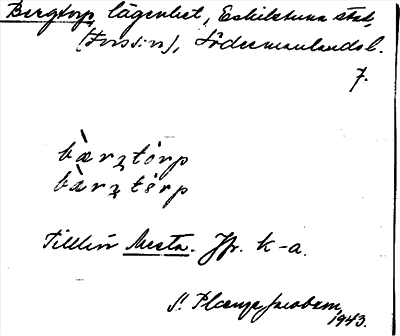 Bergtorp, lägenhet, Eskilstuna stad,
(Fors s:n), Södermanlands l.
7.
bæ̀rʒtórp
bæ̀rʒtórp
Tillhör Mesta. Jfr. k-a.
1943.